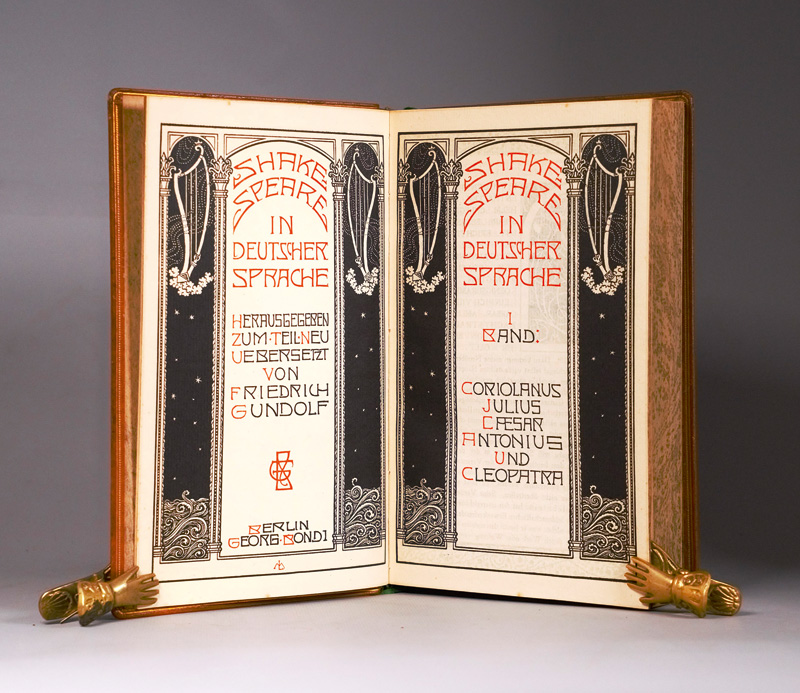 SHAKE-
SPEARE
IN
DEUTSCHER
SPRACHE
HERAUSGEGEBEN
ZUM·TEIL·NEU
UEBERSETZT
VON
FRIEDRICH
GUNDOLF
BERLIN
GEORG·BONDI
SHAKE-
SPEARE
IN
DEUTSCHER
SPRACHE
I
BAND:
CORIOLANUS
JULIUS
CÆSAR
ANTONIUS
UND
CLEOPATRA